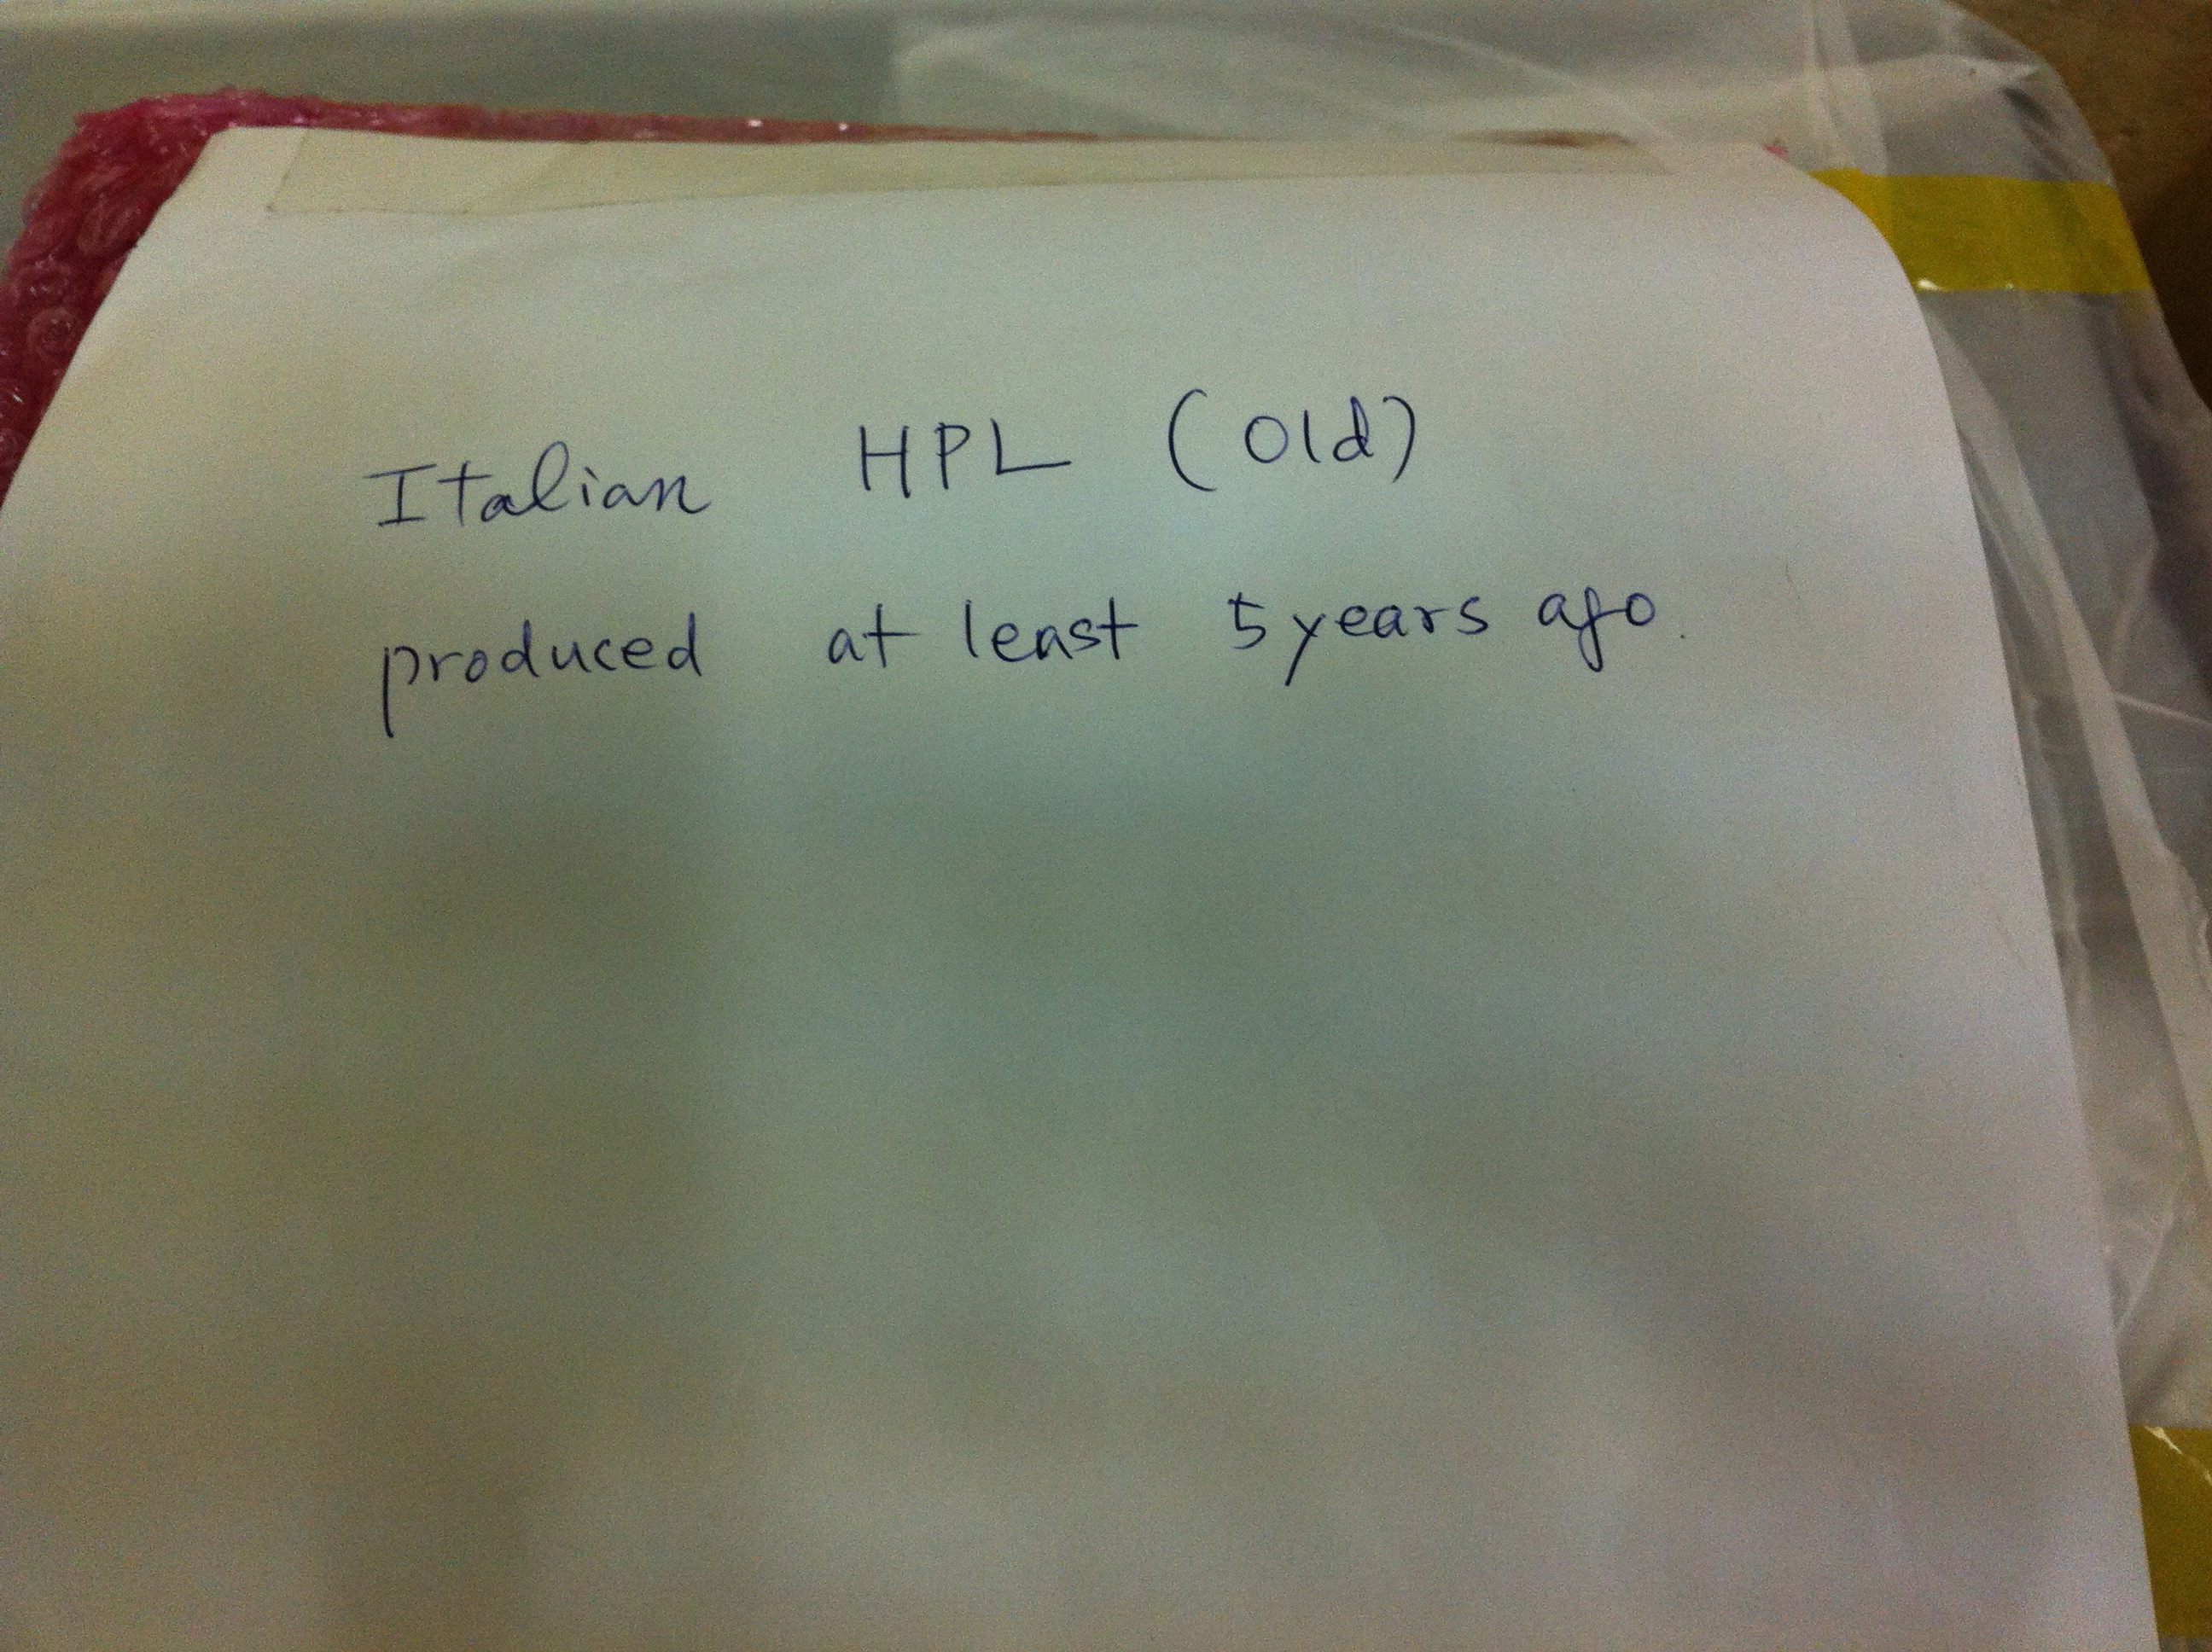 Italian HPL (Old)
produced at least 5 years ago.